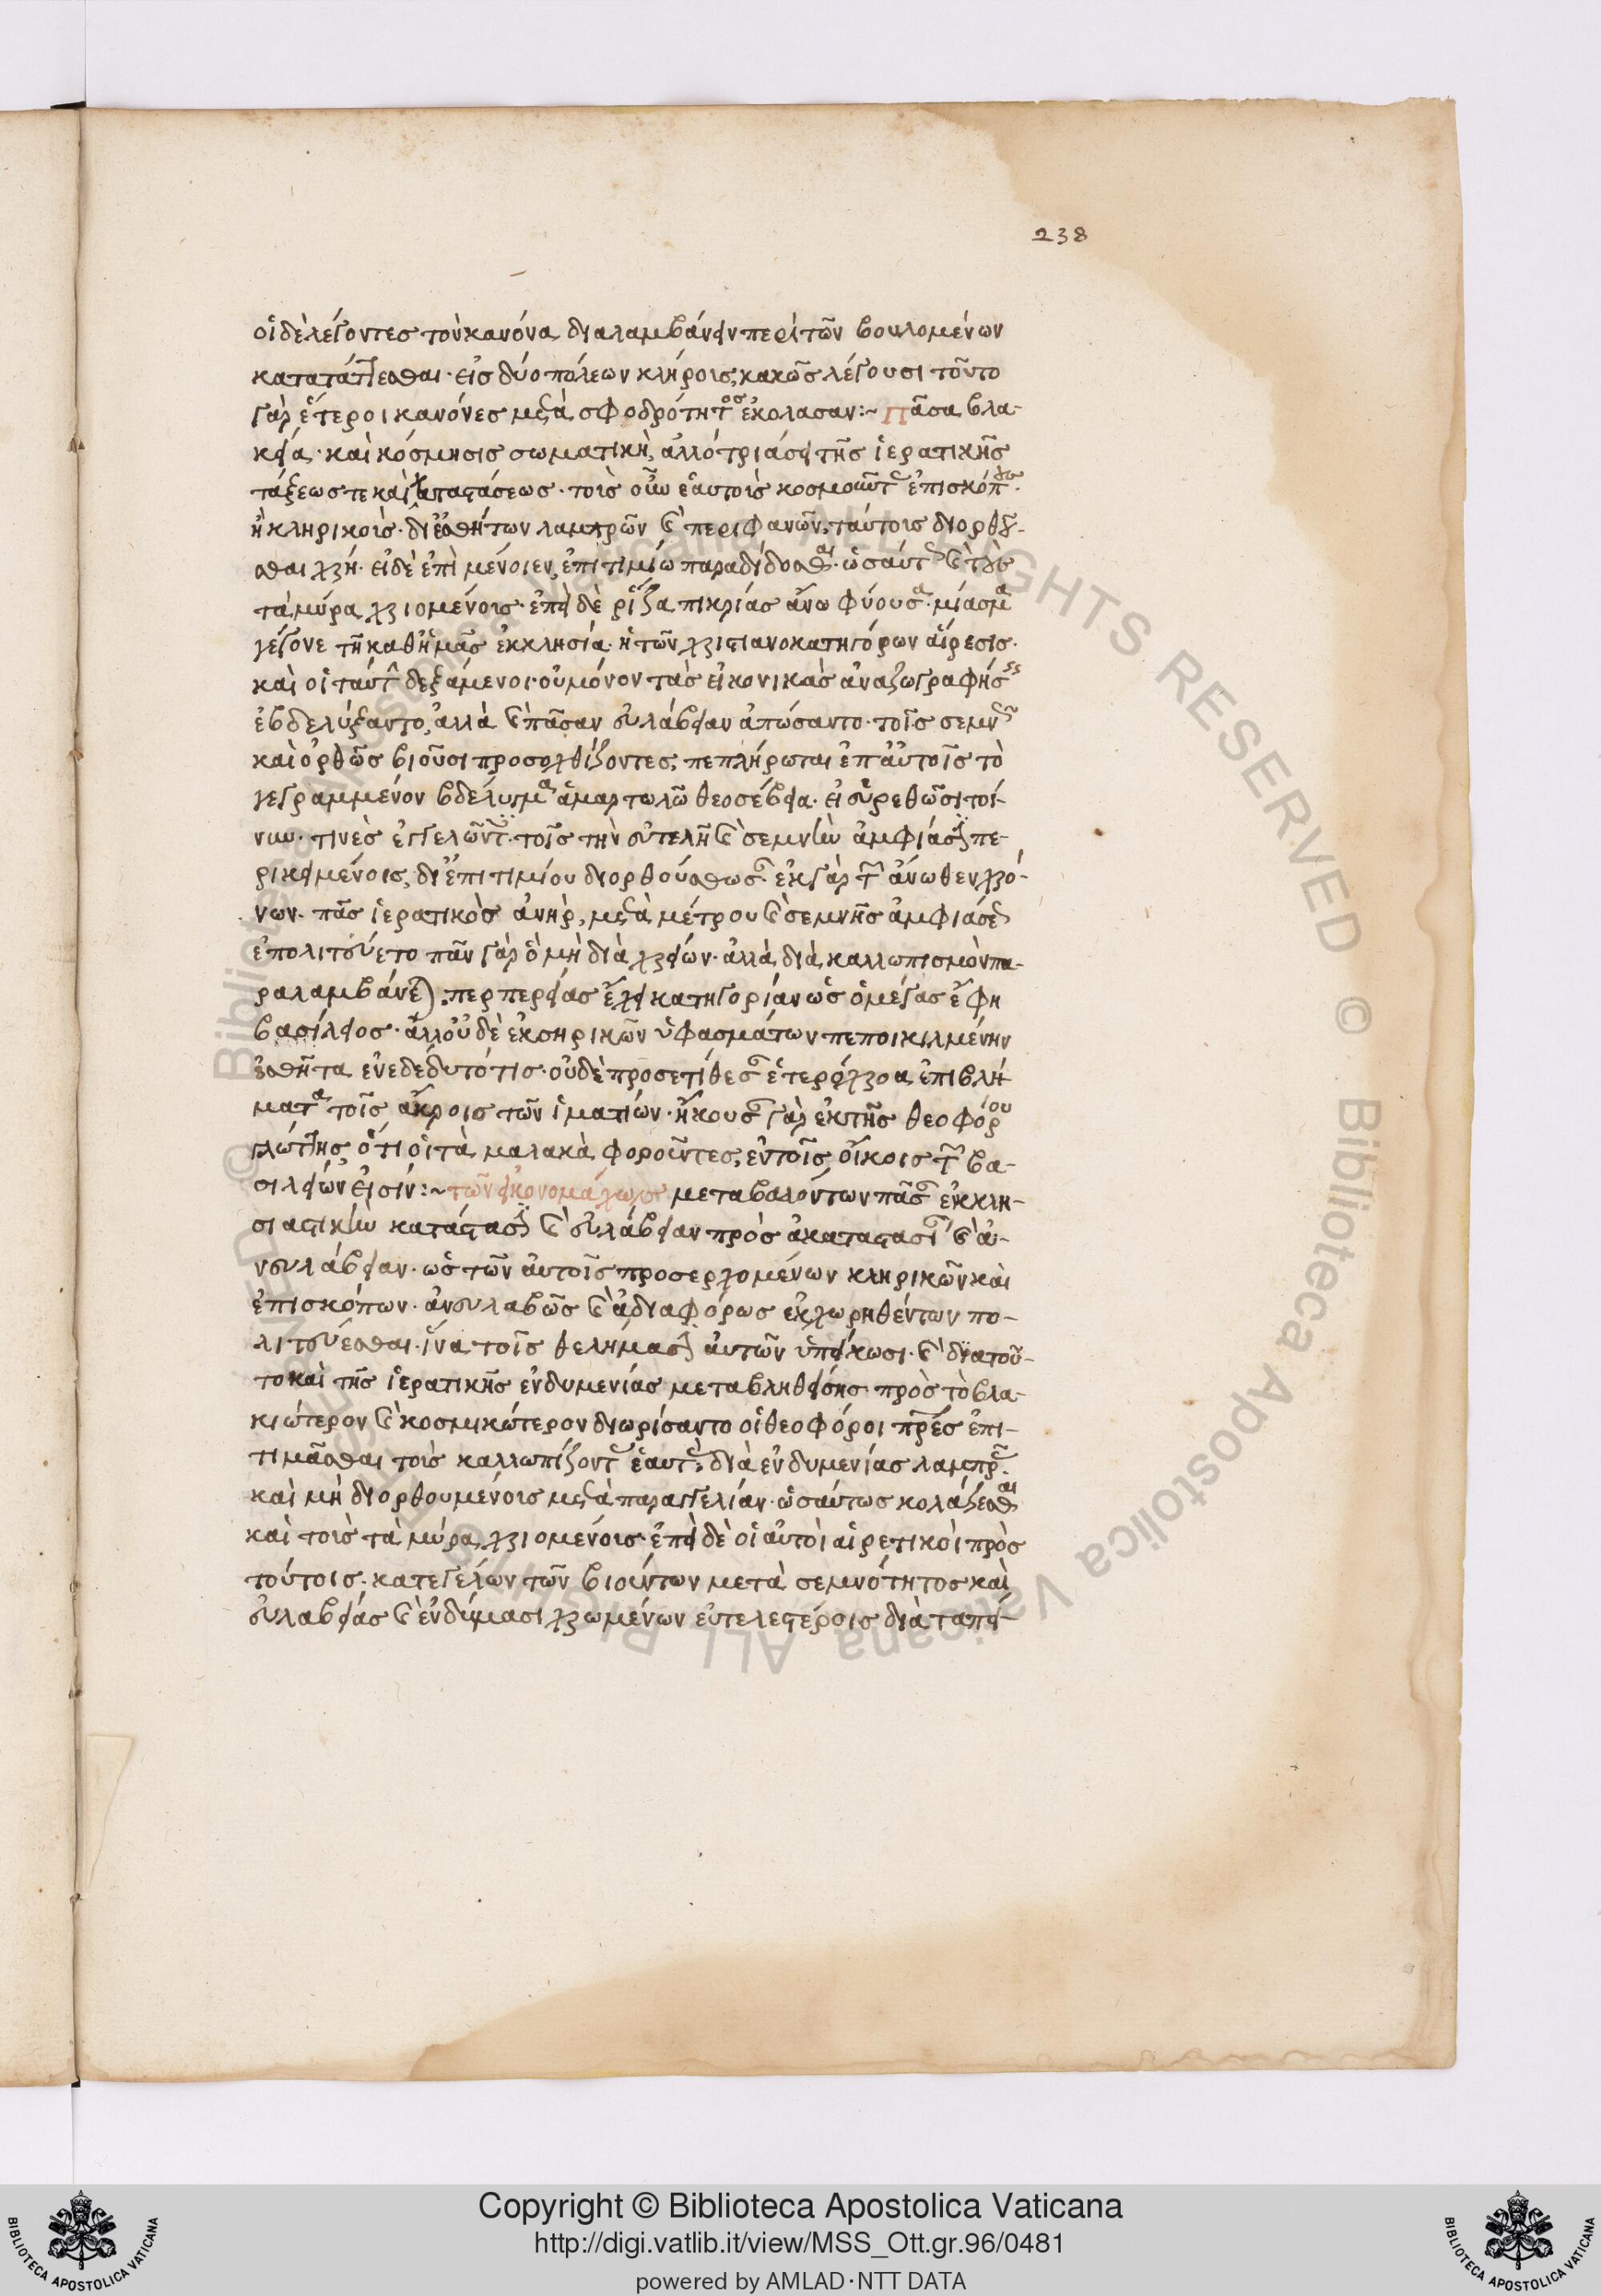 238
οἱ δὲ λέγοντες τὸν κανόνα διαλαμβάνειν περὶ τῶν βουλομένων
κατατάττεσθαι· εἰς δύο πόλεων κλήροις, κακῶς λέγουσι τοῦτο
γὰρ ἕτεροι κανόνες μετὰ σφοδρότητος ἐκόλασαν:~ Πᾶσα βλα-
κεία· καὶ κόσμησις σωματικὴ, ἀλλότριά ἐστι τῆς ἱερατικῆς
τάξεώς τε καὶ καταστάσεως· τοὺς οὖν ἑαυτοὺς κοσμοῦντας ἐπισκόπους·
ἢ κληρικοὺς· δι' ἐσθήτων λαμπρῶν καὶ περιφανῶν, τούτους διορθοῦ-
σθαι χρή· εἰ δὲ ἐπιμένοιεν, ἐπιτιμίω παραδίδοσθαι· ὡσαύτως καὶ τοὺς
τὰ μύρα χριομένους· ἐπεὶ δὲ ῥίζα πικρίας ἄνω φύουσα· μίασμα
γέγονε τῆ καθ' ἡμᾶς ἐκκλησία· ἡ τῶν χριστιανοκατηγόρων αἵρεσις·
καὶ οἱ ταύτην δεξάμενοι· οὐ μόνον τὰς εἰκονικὰς ἀναζωγραφήσεις
ἐβδελύξαντο, ἀλλὰ καὶ πᾶσαν εὐλάβειαν ἀπώσαντο· τοῖς σεμνῶς
καὶ ὀρθῶς βιοῦσι προσοχθίζοντες, πεπλήρωται ἐπ' αὐτοῖς τὸ
γεγραμμένον βδέλυγμα ἁμαρτωλῶ θεοσέβεια· εἰ εὑρεθῶσι τοί-
νυν· τινὲς ἐγγελῶντες· τοῖς τὴν εὐτελῆ καὶ σεμνὴν ἀμφίασιν πε-
ρικειμένοις, δι' ἐπιτιμίου διορθούσθωσαν· ἐκ γὰρ τῶν ἄνωθεν χρό-
νων· πᾶς ἱερατικὸς ἀνὴρ, μετὰ μέτρου καὶ σεμνῆς ἀμφιάσεως
ἐπολιτεύετο πᾶν γὰρ ὃ μὴ διὰ χρείαν· ἀλλὰ διὰ καλλωπισμὸν πα-
ραλαμβάνεται, περπερείας ἔχει κατηγορίαν ὡς ὁ μέγας ἔφη
βασίλειος· ἀλλ' οὐδὲ ἐκ σηρικῶν ὑφασμάτων πεποικιλμένην
ἐσθῆτα ἐνεδέδυτό τις· οὐδὲ προσετίθεσαν ἑτερόχροα ἐπιβλή-
ματα τοῖς ἄκροις τῶν ἱματίων· ἤκουσαν γὰρ ἐκ τῆς θεοφόρου
γλώττης ὅτι οἱ τὰ μαλακὰ φοροῦντες, ἐν τοῖς οἴκοις τῶν βα-
σιλείων εἰσίν:~ τῶν εἰκονομάχων μεταβαλόντων πᾶσαν ἐκκλη-
σιαστικὴν κατάστασιν καὶ εὐλάβειαν πρὸς ἀκαταστασίαν καὶ ἀ-
νευλάβειαν· ὡς τῶν αὐτοῖς προσερχομένων κληρικῶν καὶ
ἐπισκόπων· ἀνευλαβῶς καὶ ἀδιαφόρως ἐκχωρηθέντων πο-
λιτεύεσθαι· ἵνα τοῖς θελήμασιν αὐτῶν ὑπείκωσι· καὶ διὰ τοῦ-
το καὶ τῆς ἱερατικῆς ἐνδυμενίας μεταβληθείσης πρὸς τὸ βλα-
κιώτερον καὶ κοσμικώτερον διωρίσαντο οἱ θεοφόροι πρες ἐπι-
τιμᾶσθαι τοὺς καλλωπίζοντας ἑαυτοὺς, διὰ ἐνδυμενίας λαμπρᾶς·
καὶ μὴ διορθουμένους μετὰ παραγγελίαν· ὡσαύτως κολάζεσθαι
καὶ τοὺς τὰ μύρα χριομένους· ἐπεὶ δὲ οἱ αὐτοὶ αἱρετικοὶ πρὸς
τούτοις· κατεγέλων τῶν βιούντων μετὰ σεμνότητος καὶ
εὐλαβείας καὶ ἐνδύμασι χρωμένων εὐτελεστέροις διὰ ταπεί-
Copyright © Biblioteca Apostolica Vaticana
http://digi.vatlib.it/view/MSS_Ott.gr.96/0481
powered by AMLAD·NTT DATA
BIBLIOTECA APOSTOLICA VATICANA
BIBLIOTECA APOSTOLICA VATICANA
© Biblioteca Apostolica Vaticana ALL RIGHTS RESERVED © Biblioteca Apostolica Vaticana ALL RIGHTS RESERVED